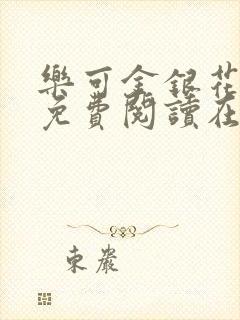 樂可金銀花
免費閱讀在
東嚴